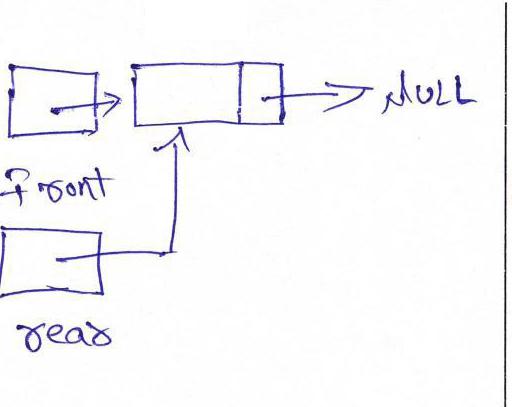 NULL
Front
rear